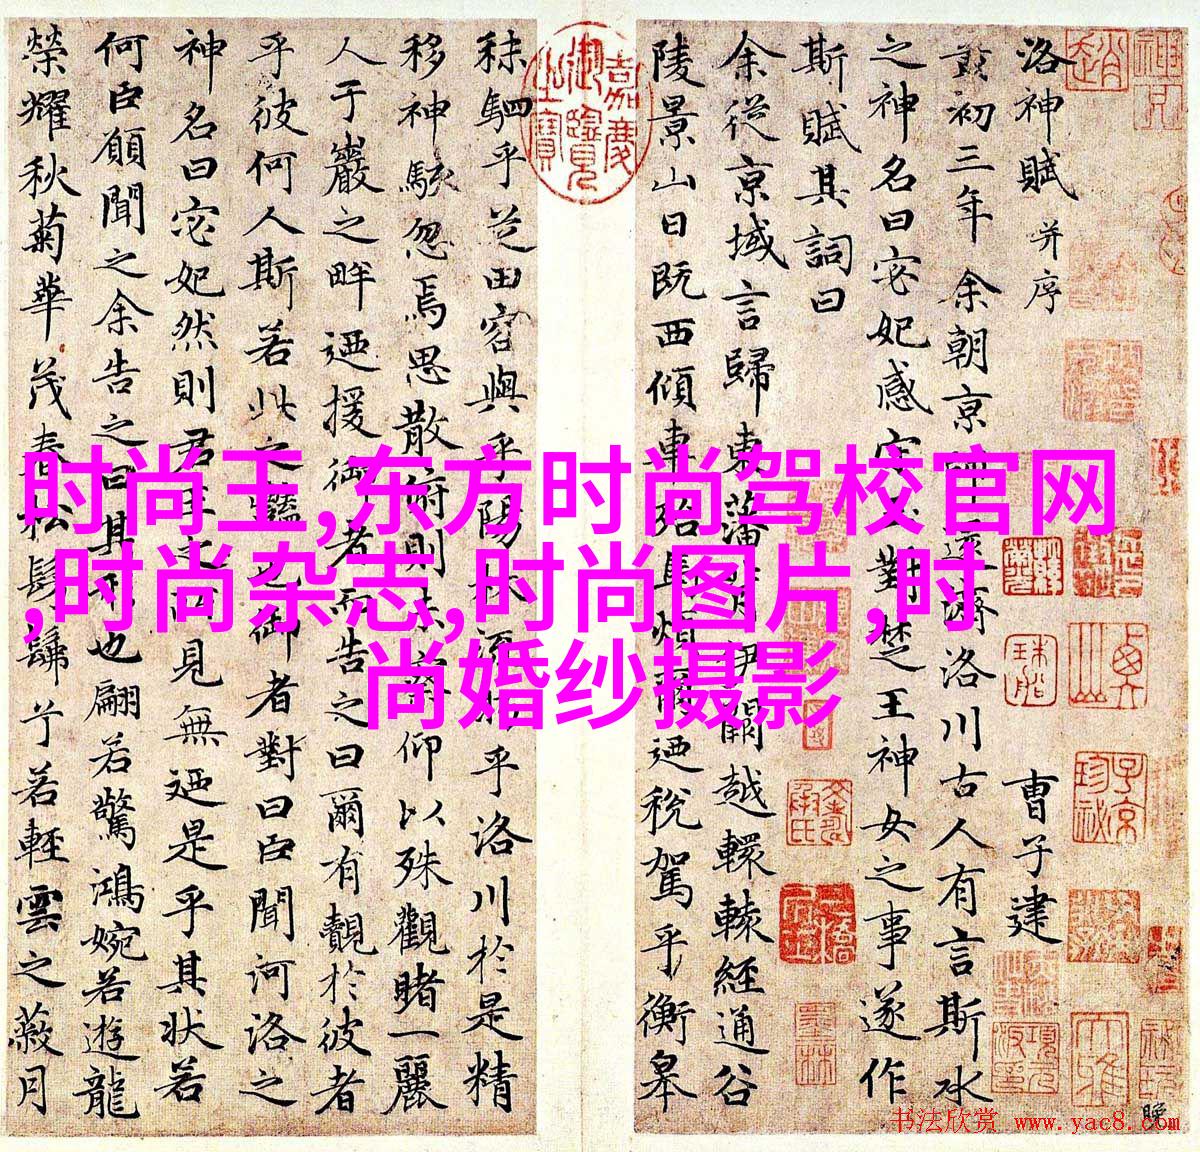 洛神賦 并序
曹子建
黃初三年余朝京師還濟洛川古人有言斯水
之神名曰宓妃感宋玉對楚王神女之事遂作
斯賦其詞曰
余從京域言歸東藩背伊闕越轘轅經通谷
陵景山日既西傾車殆馬煩爾迺稅駕乎衡皋
秣駟乎芝田容與乎陽林流眄乎洛川於是精
移神駭忽焉思散俯則未察仰以殊觀睹一麗
人于巖之畔迺援御者而告之曰爾有覿於彼者
乎彼何人斯若此之豔也御者對曰臣聞河洛之
神名曰宓妃然則君王之所見無迺是乎其狀若
何臣願聞之余告之曰其形也翩若驚鴻婉若遊龍
榮耀秋菊華茂春松髣髴兮若輕雲之蔽月
嘉慶御覽之寶
时尚王,东方时尚驾校官网
,时尚杂志,时尚图片,时
尚婚纱摄影
书法欣赏 www.yac8.com